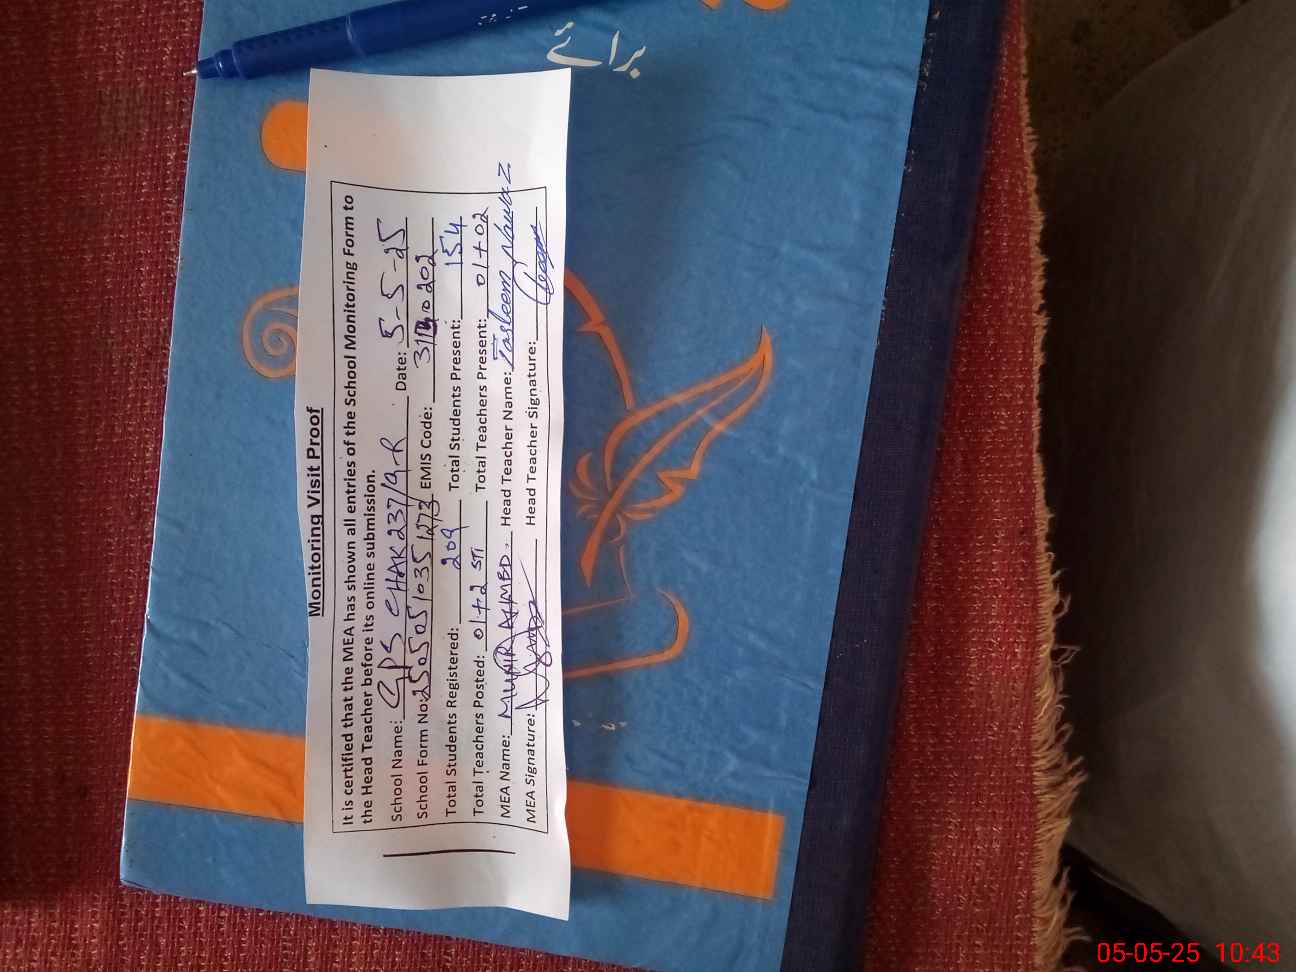 برائے
Monitoring Visit Proof
It is certified that the MEA has shown all entries of the School Monitoring Form to
the Head Teacher before its online submission.
School Name: GPS CHAK 237/9-R Date: 5-5-25
School Form No: 25050510351273 EMIS Code: 31140202
Total Students Registered: 209 Total Students Present: 154
Total Teachers Posted: 01+2 STI Total Teachers Present: 01+02
MEA Name: MUNIR AHMED. Head Teacher Name: Tasleem Nawaz
MEA Signature: Head Teacher Signature:
05-05-25 10:43